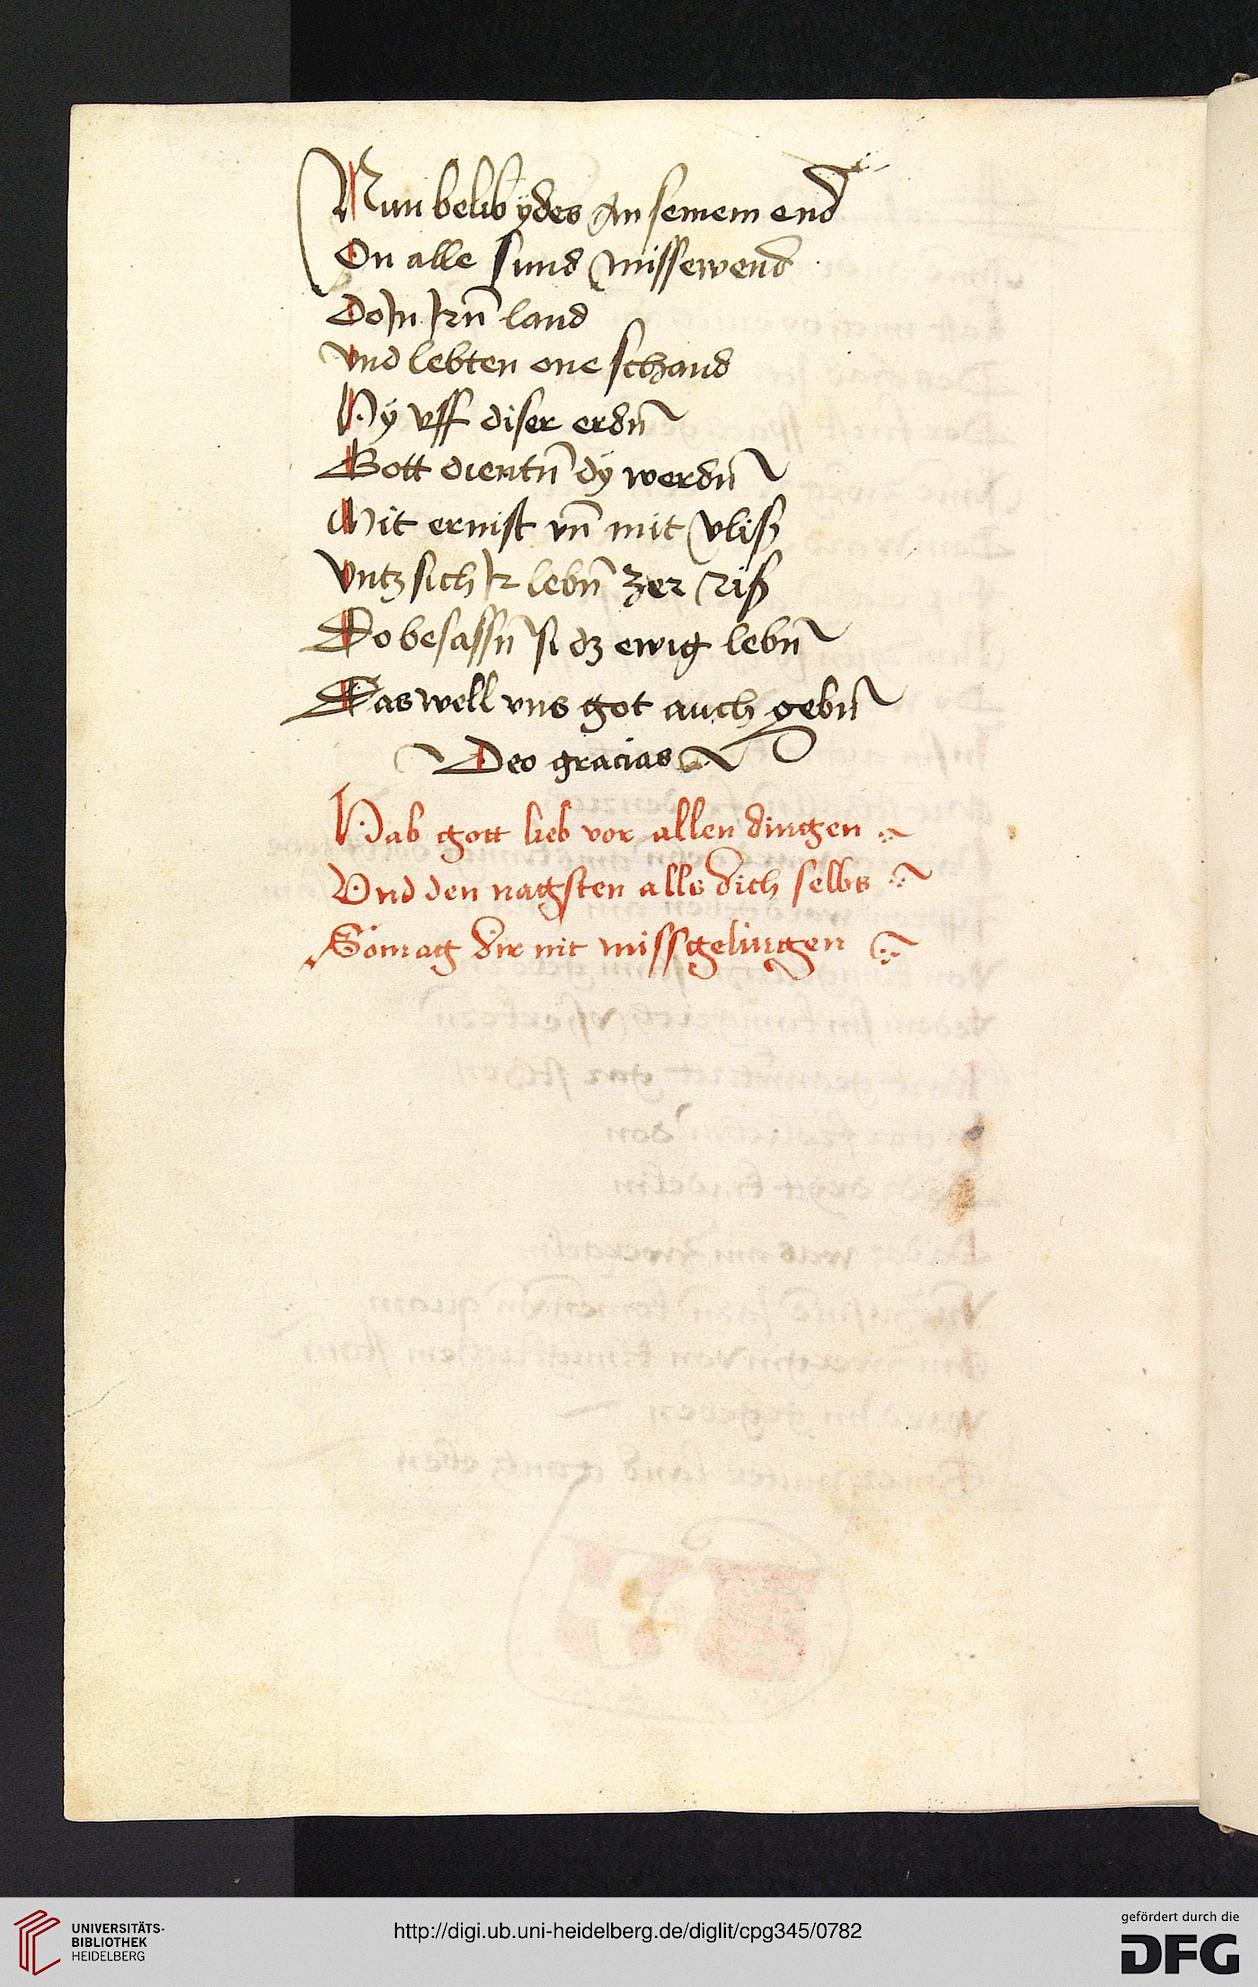 Nun belib ydes An seinem end
On alle sund missewend
Do In Irn̄ land
Vnd lebten one schand
Hy vff diser erdn̄
Gott dientn̄ dy werdn̄
Mit ernist vn̄ mit vliß
Vntz sich Ir lebn̄ zer riß
Do besassn̄ si dz ewig lebn̄
Das well vns got auch gebn̄
Deo gracias
Hab gott lieb vor allen dingen
Vnd den nagsten alls dich selbs
So mag dir nit missgelingen
UNIVERSITÄTS-
BIBLIOTHEK
HEIDELBERG
http://digi.ub.uni-heidelberg.de/diglit/cpg345/0782
gefördert durch die
DFG